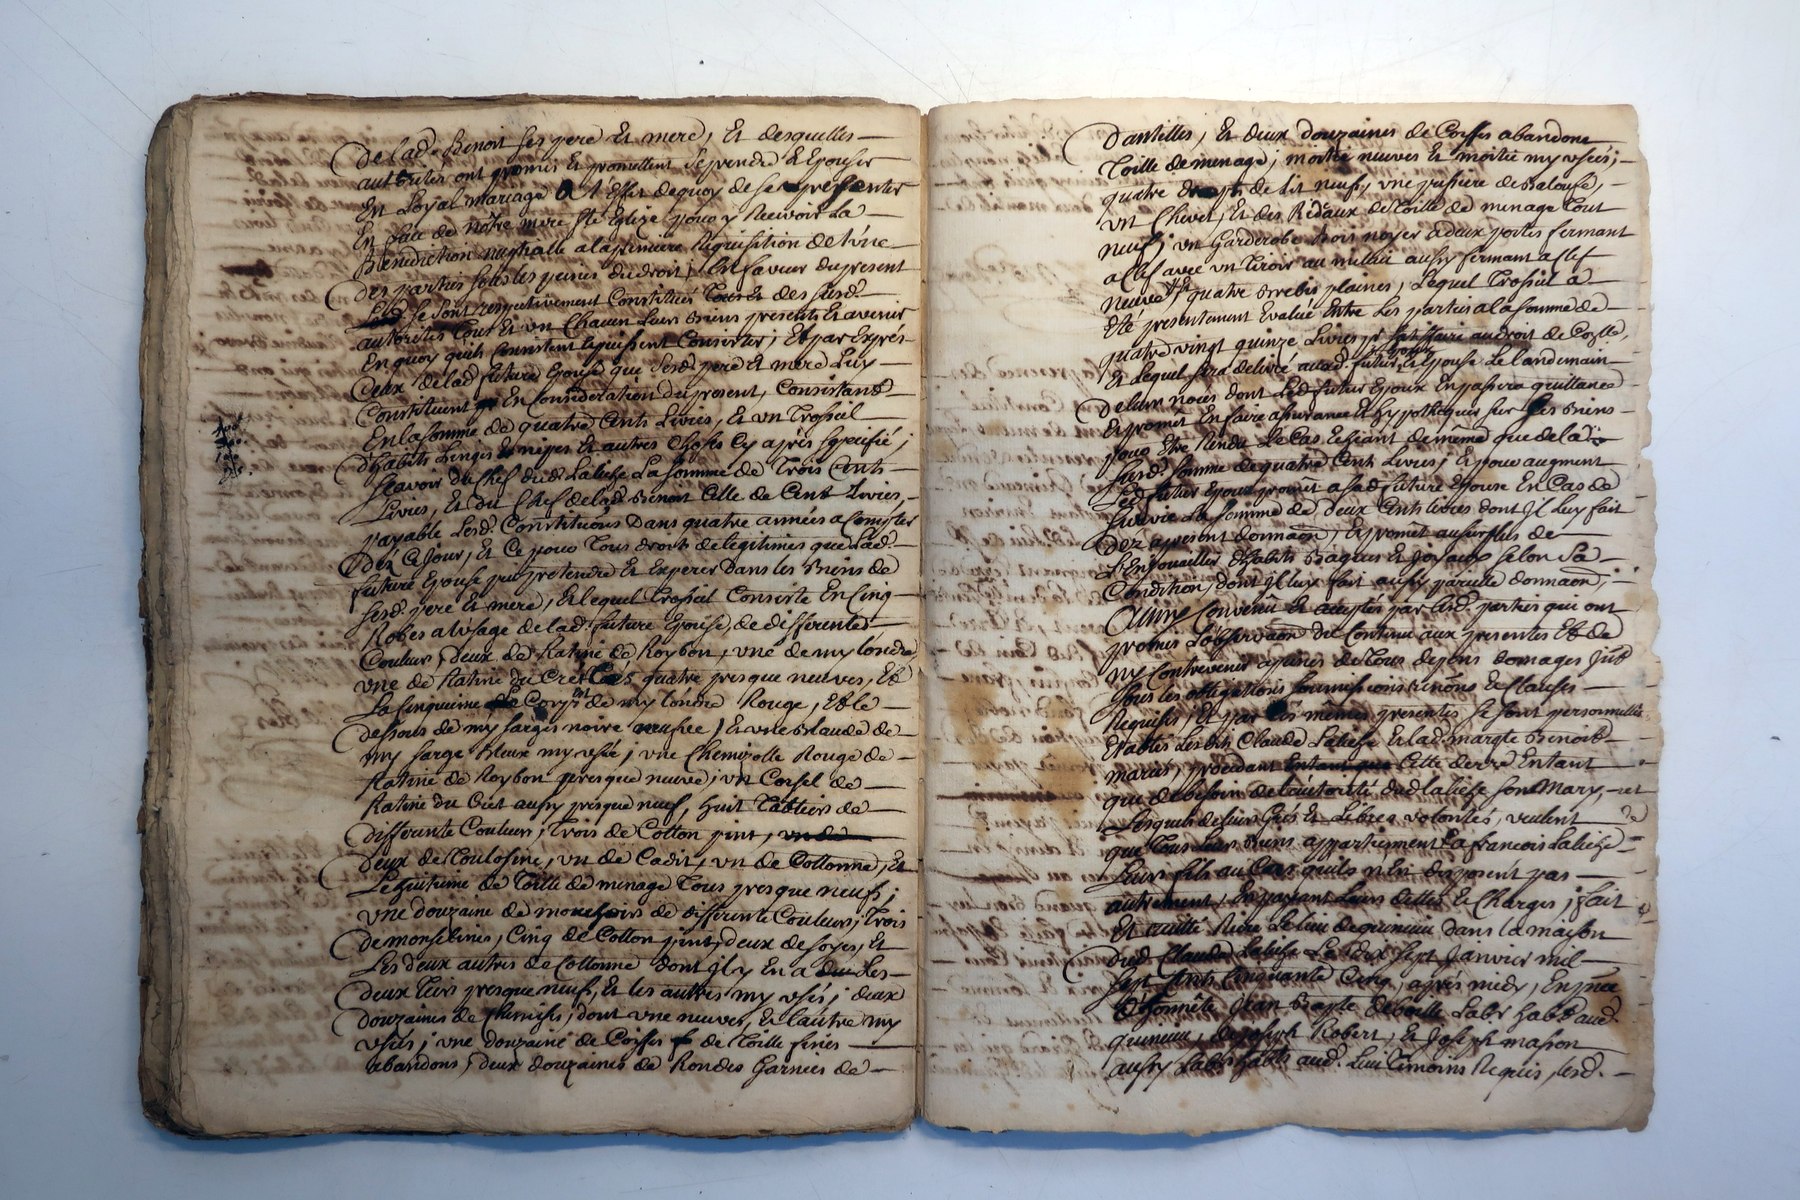 De lad. Benoit ses pere Et mere, Et desquelles
authorités ont promis Et promettent Se prendre & Epouser
En Loyal mariage Et A Effet de quoy de se présenter
En face de nôtre mere Ste Eglize pour y Recevoir La
Benediction nuptialle a la premiere Requisition de L'une
Des parties sous les peines du droit; En faveur du present
se sont respectivement Constitués Tous Et des susd.
autorités Tous Et un Chacun Leurs Biens presents Et avenir
En quoy quils Consistent Et puissent Consister; Et par Exprés
Ceux de lad. future Epouse que Sesd. pere Et mere Luy
Constituent En Consideration du present, Consistand
En la somme de quatre Cents Livres, Et un Trossel
D'habits Linges Et autres Choses Cy après specifié;
sçavoir du Chef dud. Labeße La somme de Trois Cents
Livres, Et du Chef de lad. Benoit Celle de Cent Livres,
payable Lesd. Constitutions Dans quatre années a Compter
Dez Ce Jour, Et Ce pour Tous droits de legitimes que Lad.
future Epouse puis pretendre Et Esperer Dans les Biens de
sesd. pere Et mere, Et lequel Trossel Consiste En Cinq
Robes a l'usage de lad. future Epouse, de differentes
Couleurs, deux de Ratine de Roybon, une de my londre
une de Ratine du Crest quatre presque neuves, Et
La Cinquieme Corps de my londre Rouge, Et le
dessous de my sarges noire neufve, Et une Blaude de
my sarge bleux my usée; une Chemizolle Rouge de
Ratine de Roybon presque neuve; un Corset de
Ratine du Crest aussy presque neuf, huit Tabliers de
differente Couleurs, Trois de Cotton pint,
deux de Toulosine, un de Cadit, un de Cottonne, Et
Le huitieme de Toille de menage Tous presque neufs;
une douzaine de mouchoirs de differente Couleurs; Trois
De monselines, Cinq de Cotton pint, deux de soyes, Et
Les deux autres de Cottonne dont il y En a Les
deux Tiers presque neufs, Et les autres my usés; deux
douzaines de Chemises, dont une neuves, Et L'autre my
usés; une douzaine de Coiffes de Toille fines
abandons, deux douzaines de Rondes Garnies de
Dantelles, Et deux douzaines de Coiffes abandone
Toille de menage; moitié neuves Et moitié my usées;
quatre draps de lit neufs, une de Balouse,
un Chevet, Et des Rideaux de Toille de menage Tout
neufs; un Garderobe Bois noyer a deux portes fermant
a Clef avec un Tiroir au milieu aussy fermant a Clef
neuve quatre Brebis plaines, Lequel Trossel a
Eté presentement Evalué Entre Les parties a la somme de
quatre vingt quinze Livres satisfaire au droit de
Et Lequel sera delivré Le landemain
De leurs noces dont Led. futur Epoux En passera quittance
Et promet En faire assurance Et hypotheques sur Ses Biens
pour Etre Rendu Le Cas Echeant de même que de la
susd. somme de quatre Cents Livres; Et pour augment
Led. futur Epoux promet a sad. future Epouse En Cas de
survie La somme de deux Cents livres dont Il luy fait
Dez appresent donnaon, Et promet au surplus de
L'Enjouailler d'habits Bagues Et Joyaux selon Sa
Condition, dont Il lux fait aussy pareille donnaon;
Ainsy Convenû Et acceptés par lesd. parties qui ont
promis L'observaon du Contenu aux presentes Et de
ny Contrevenir a peines de Tous depens domages
sous les obligations soumissions renons Et Clauses
Requises; Et par Ces mêmes presentes se sont personnellement
Etablis Lesdits Claude Labeße Et lad. margte Benoit
maries, procedant Cette derre Entant
que de besoin de l'autorité dud. Labeße son Mary,
Lesquels de leurs Grés Et Libres volontés, veulent
que Tous Leurs Biens appartiennent a francois Labeße
Leurs fils au Cas quils n'En disposent pas
autrement, En payant Leurs dettes Et Charges; fait
Et recitté Riere Le lieu de quincieu dans La maison
Dud. Claude Labeße Le dix sept Janvier mil
sept Cents Cinquante Cinq, après midy, En pnce
D'honnête Jean Bayle labr habt aud.
quincieu, de Joseph Robert, Et Joseph masson
aussy Labrs habts aud. Lieu Temoins Requis, lesd.